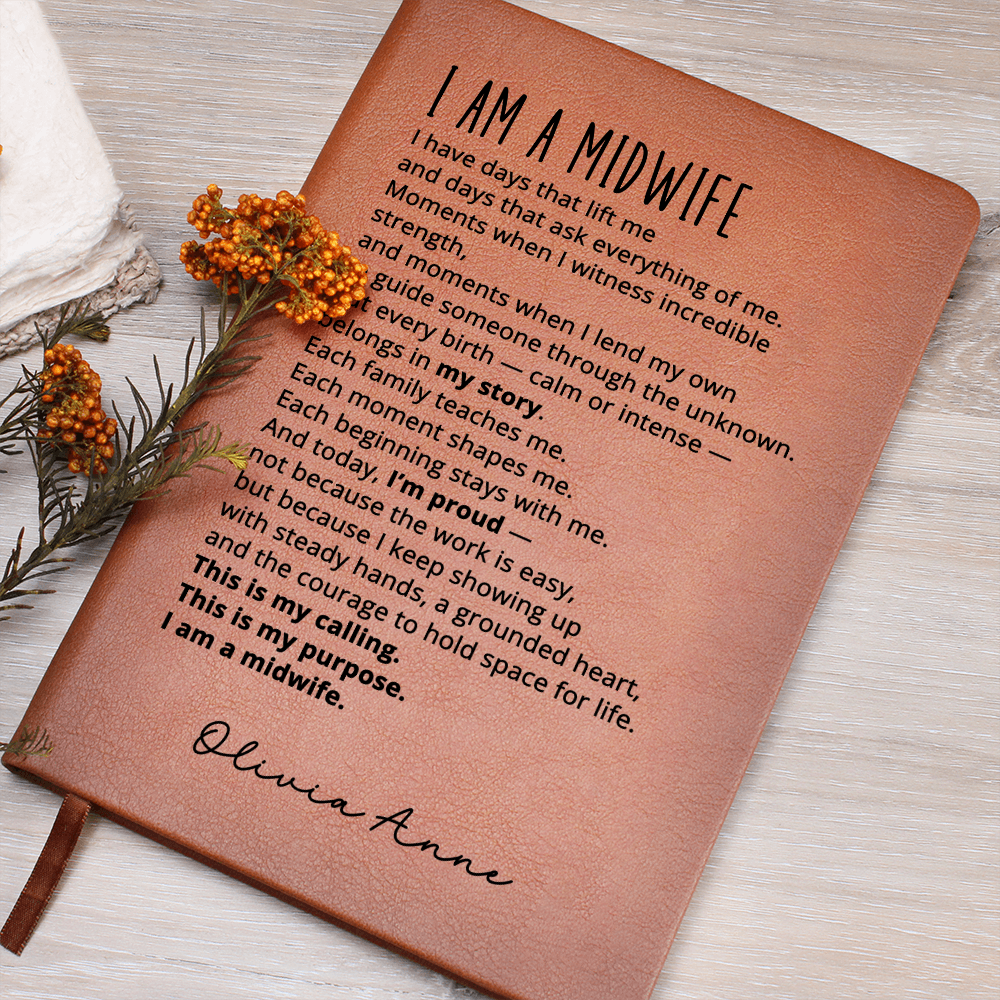 I AM A MIDWIFE
I have days that lift me
and days that ask everything of me.
Moments when I witness incredible
strength,
and moments when I lend my own
guide someone through the unknown.
every birth — calm or intense —
belongs in my story.
Each family teaches me.
Each moment shapes me.
Each beginning stays with me.
And today, I’m proud —
not because the work is easy,
but because I keep showing up
with steady hands, a grounded heart,
and the courage to hold space for life.
This is my calling.
This is my purpose.
I am a midwife.
Olivia Anne